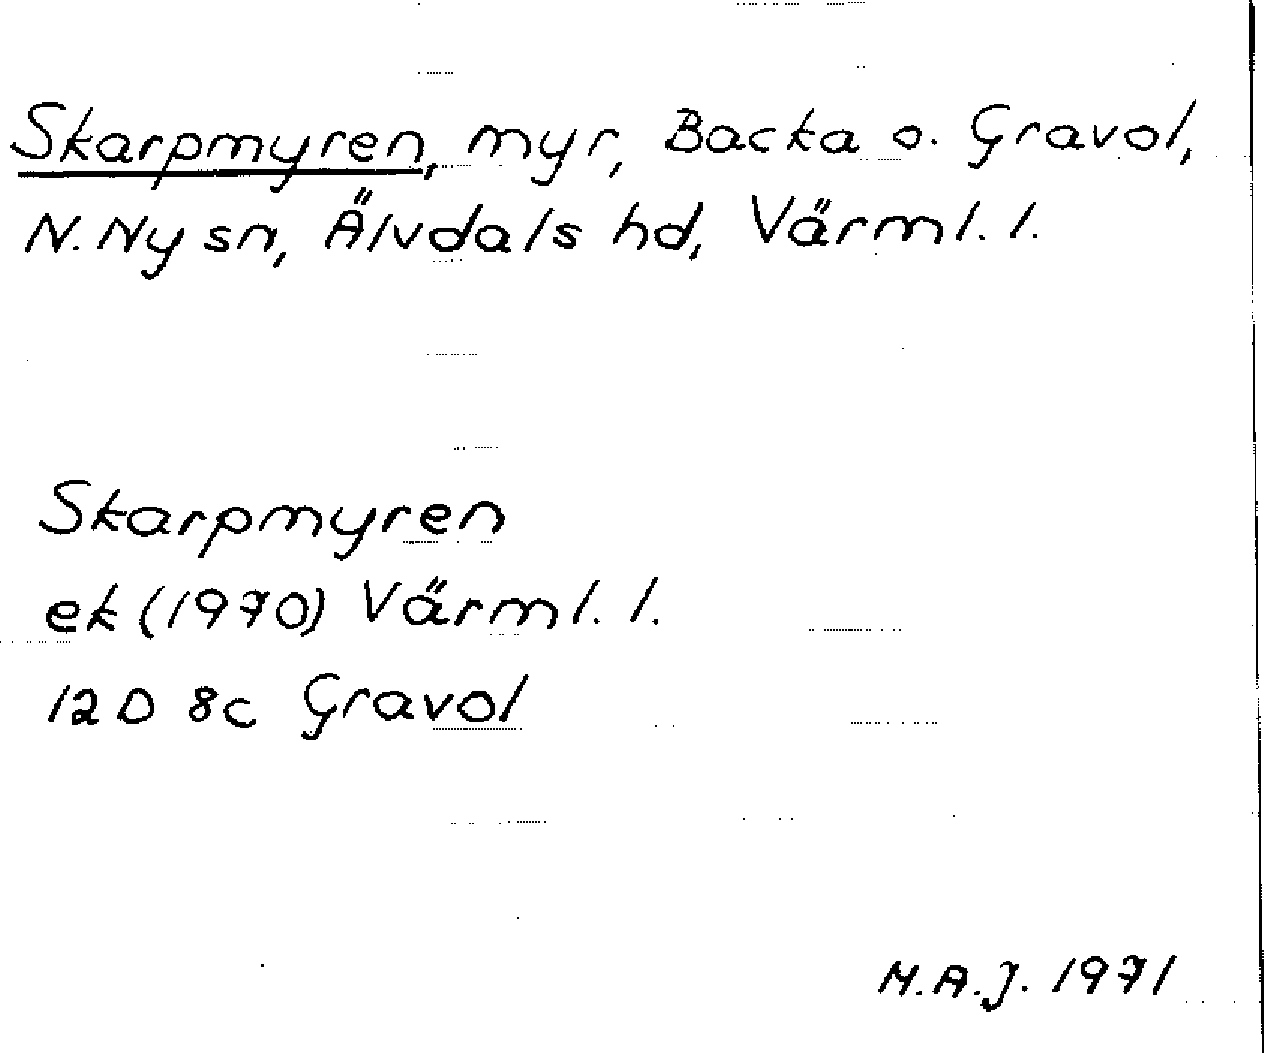 Skarpmyren, myr, Backa o. Gravol,
N. Ny sn, Älvdals hd, Värml. l.
Skarpmyren
ek (1970) Värml. l.
12 D 8c Gravol
M.A.J. 1971